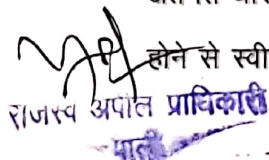 होने से स्वी
राजस्व अपील प्राधिकारी
पाली